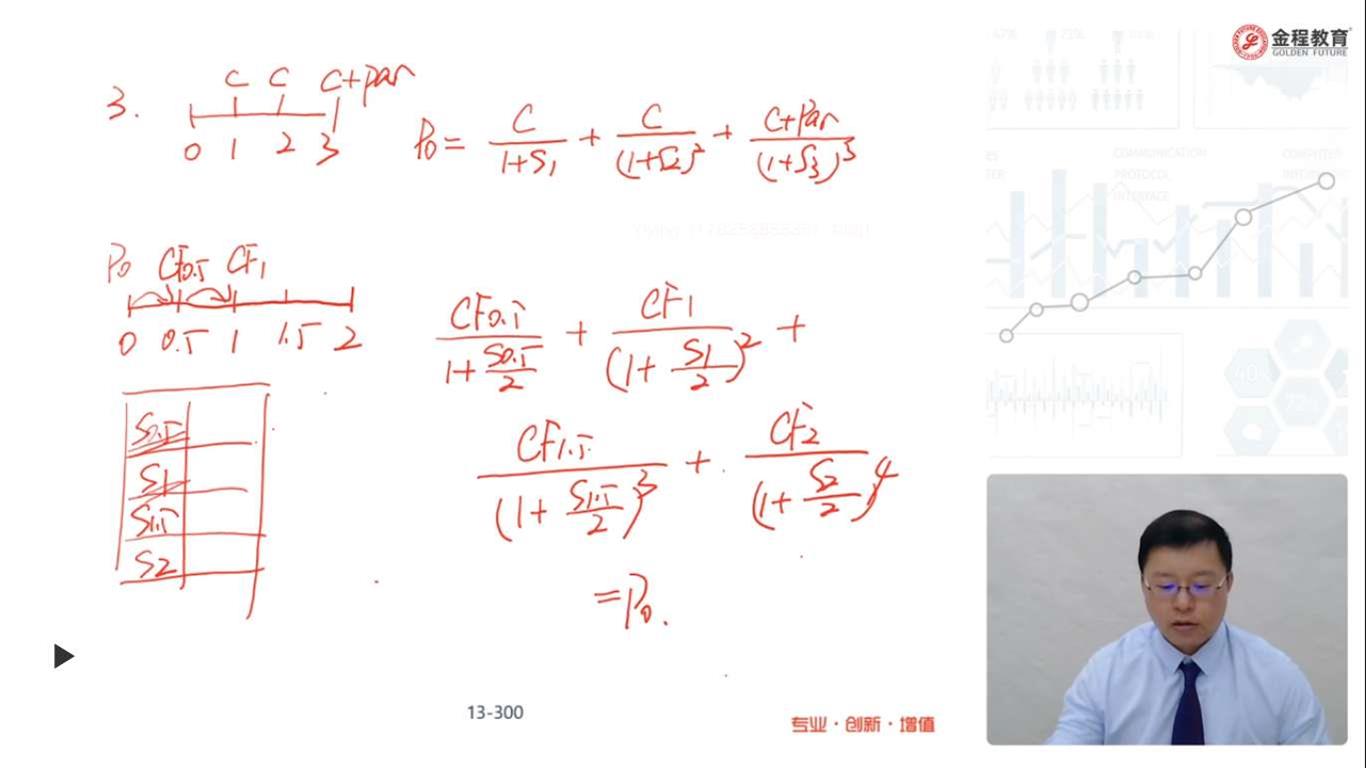 金程教育
GOLDEN FUTURE
3.
C C C+Par
0 1 2 3
P0 = C/(1+S1) + C/(1+S2)^2 + (C+Par)/(1+S3)^3
P0 CF0.5 CF1
0 0.5 1 1.5 2
CF0.5/(1+S0.5/2) + CF1/(1+S1/2)^2 +
CF1.5/(1+S1.5/2)^3 + CF2/(1+S2/2)^4
= P0.
S0.5
S1
S1.5
S2
COMMUNICATION
PROTOCOL
INTERFACE
COMPUTER
40%
72%
13-300
专业·创新·增值